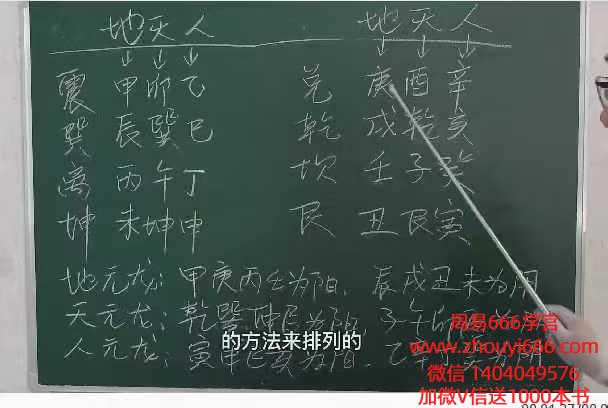 地天人 地天人
震 甲卯乙 兑 庚酉辛
巽 辰巽巳 乾 戌乾亥
离 丙午丁 坎 壬子癸
坤 未坤申 艮 丑艮寅
地元龙：甲庚丙壬为阳、辰戌丑未为阴
天元龙：乾巽坤艮为阳、子午
人元龙：寅申巳亥为阳、乙辛
的方法来排列的
周易666学官
www.zhouyi666.com
微信 1404049576
加微V信送1000本书